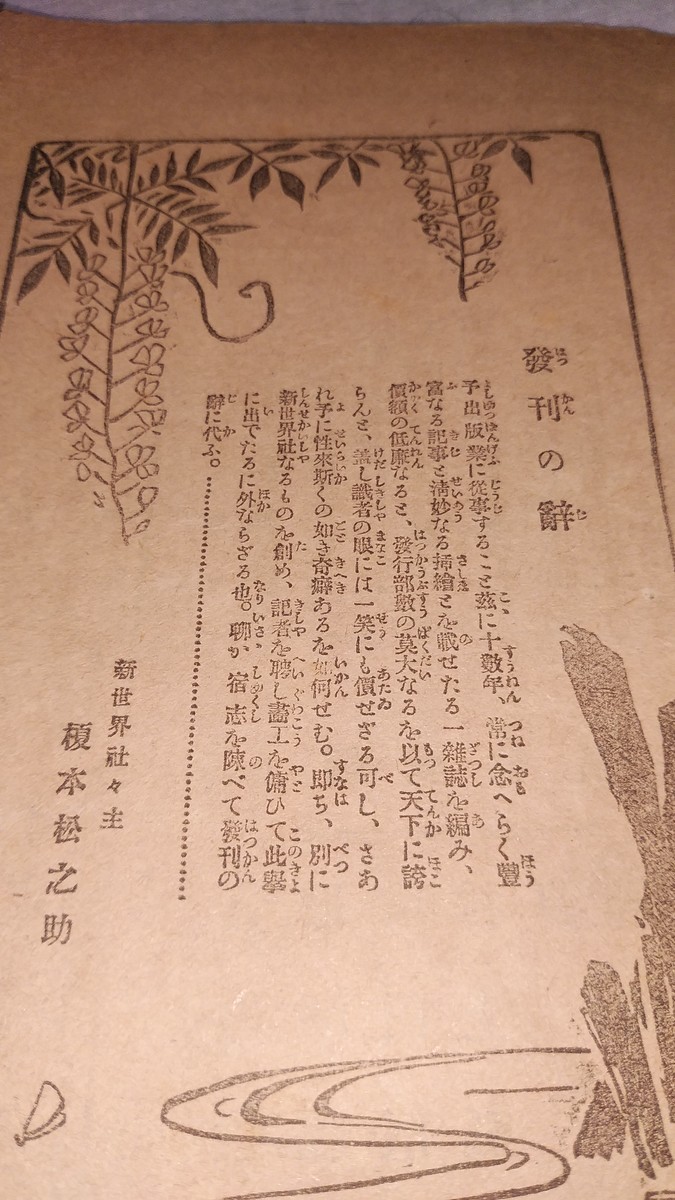 發刊の辭
予出版業に從事すること茲に十數年、常に念へらく豐
富なる記事と淸妙なる挿繪とを載せたる一雜誌を編み、
價額の低廉なると、發行部數の莫大なるを以て天下に誇
らんと、盖し識者の眼には一笑にも價せざる可し、さあ
れ予に性來斯くの如き奇癖あるを如何せむ。即ち、別に
新世界社なるものを創め、記者を聘し畵工を傭ひて此擧
に出でたるに外ならざる也。聊か宿志を陳べて發刊の
辭に代ふ。
新世界社々主
榎本松之助